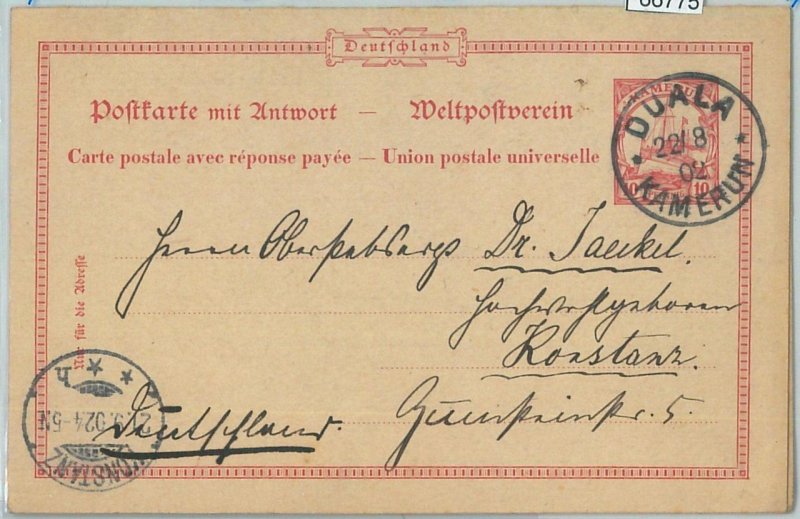 66775
Deutschland
Postkarte mit Antwort — Weltpostverein
Carte postale avec réponse payée — Union postale universelle
KAMERUN
10 10
DUALA
22/8
02
KAMERUN
Nur für die Adresse
Herrn Oberstabsarzt Dr. Jaeckel.
Hochwohlgeboren
Konstanz.
Deutschland. 5.
KONSTANZ
21.9.02 4-5N